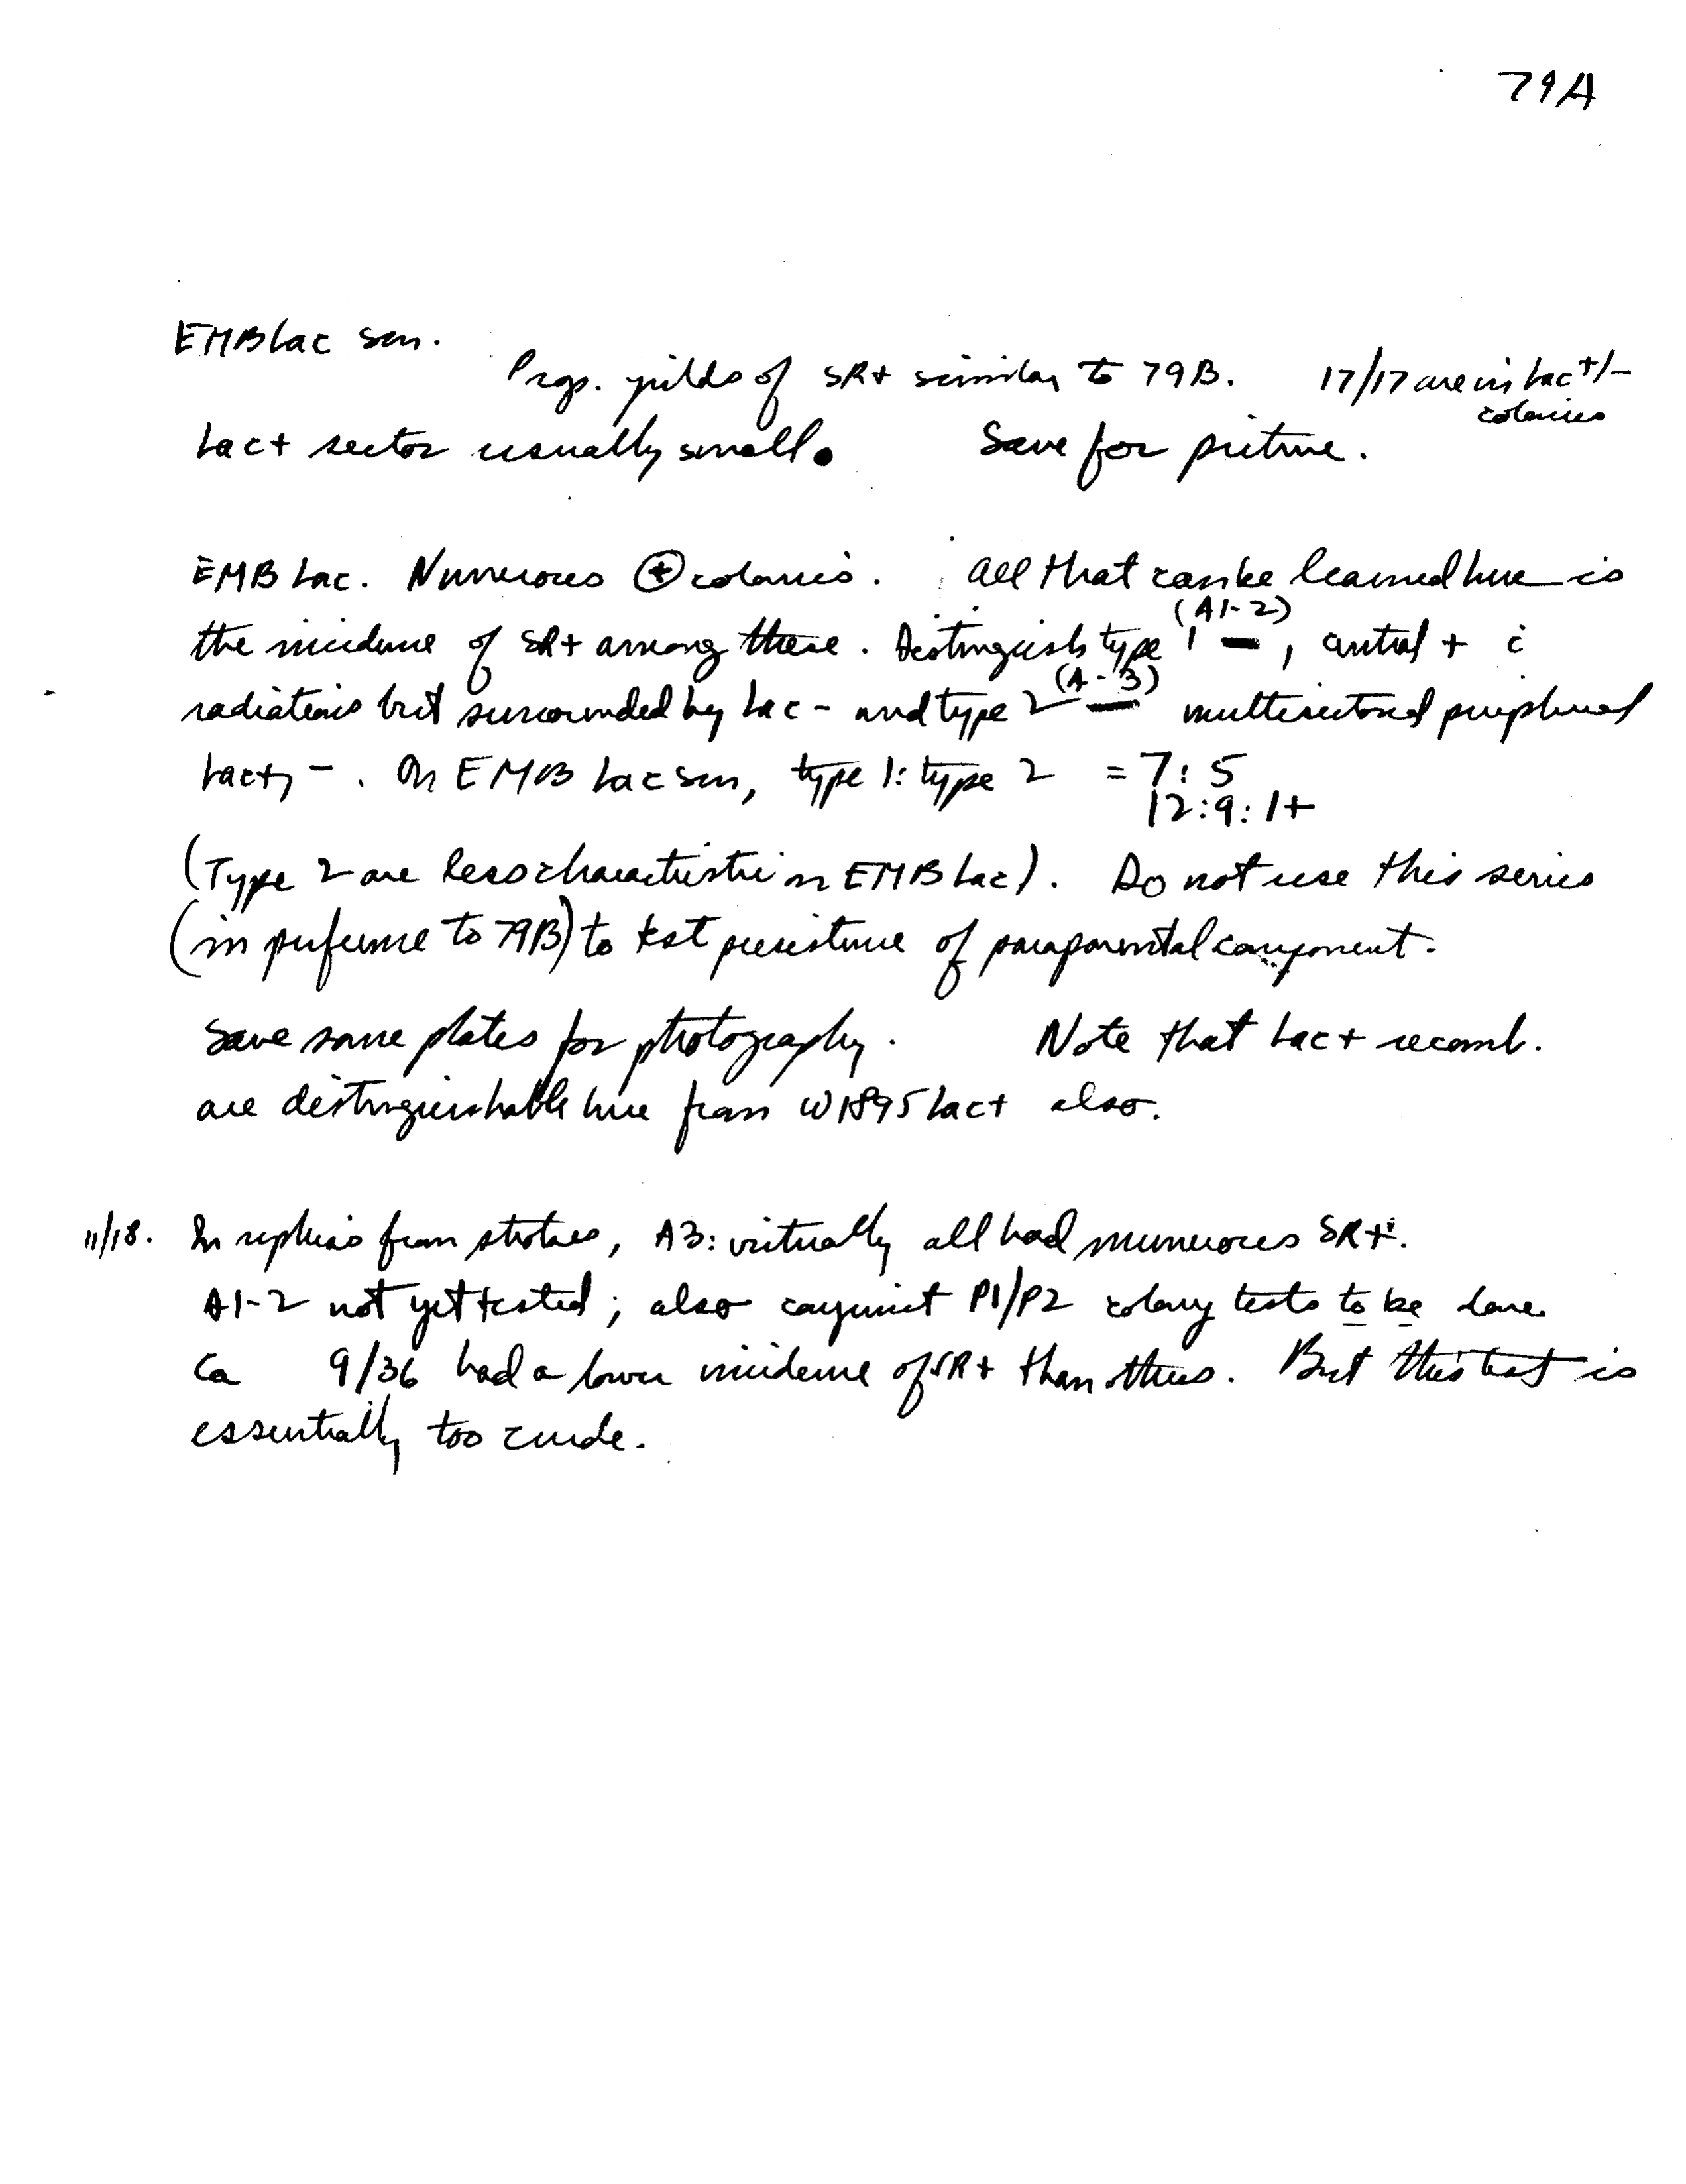 79A
EMB Lac sm.
Prop. yields of SR+ similar to 79B. 17/17 are in Lac+/-
colonies
Lac+ sector usually small. Save for picture.
EMB Lac. Numerous ⊕ colonies. All that can be learned here is
(A1-2)
the incidence of SR+ among these. Distinguish type 1 —, central + c̄
(A-3)
radiations but surrounded by Lac- and type 2 — multisectored peripheral
Lac+, -. On EMB Lac sm, type 1: type 2 = 7:5
12:9:1+
(Type 2 are less characteristic on EMB Lac). Do not use this series
(in preference to 79B) to test persistence of paraparental component.
Save some plates for photography. Note that Lac+ recomb.
are distinguishable here from W1895 Lac+ also.
11/18. In replicas from strokes, A3: virtually all had numerous SR+.
A1-2 not yet tested; also conjunct P1/P2 colony tests to be done
Ca 9/36 had a lower incidence of SR+ than others. But this test is
essentially too crude.